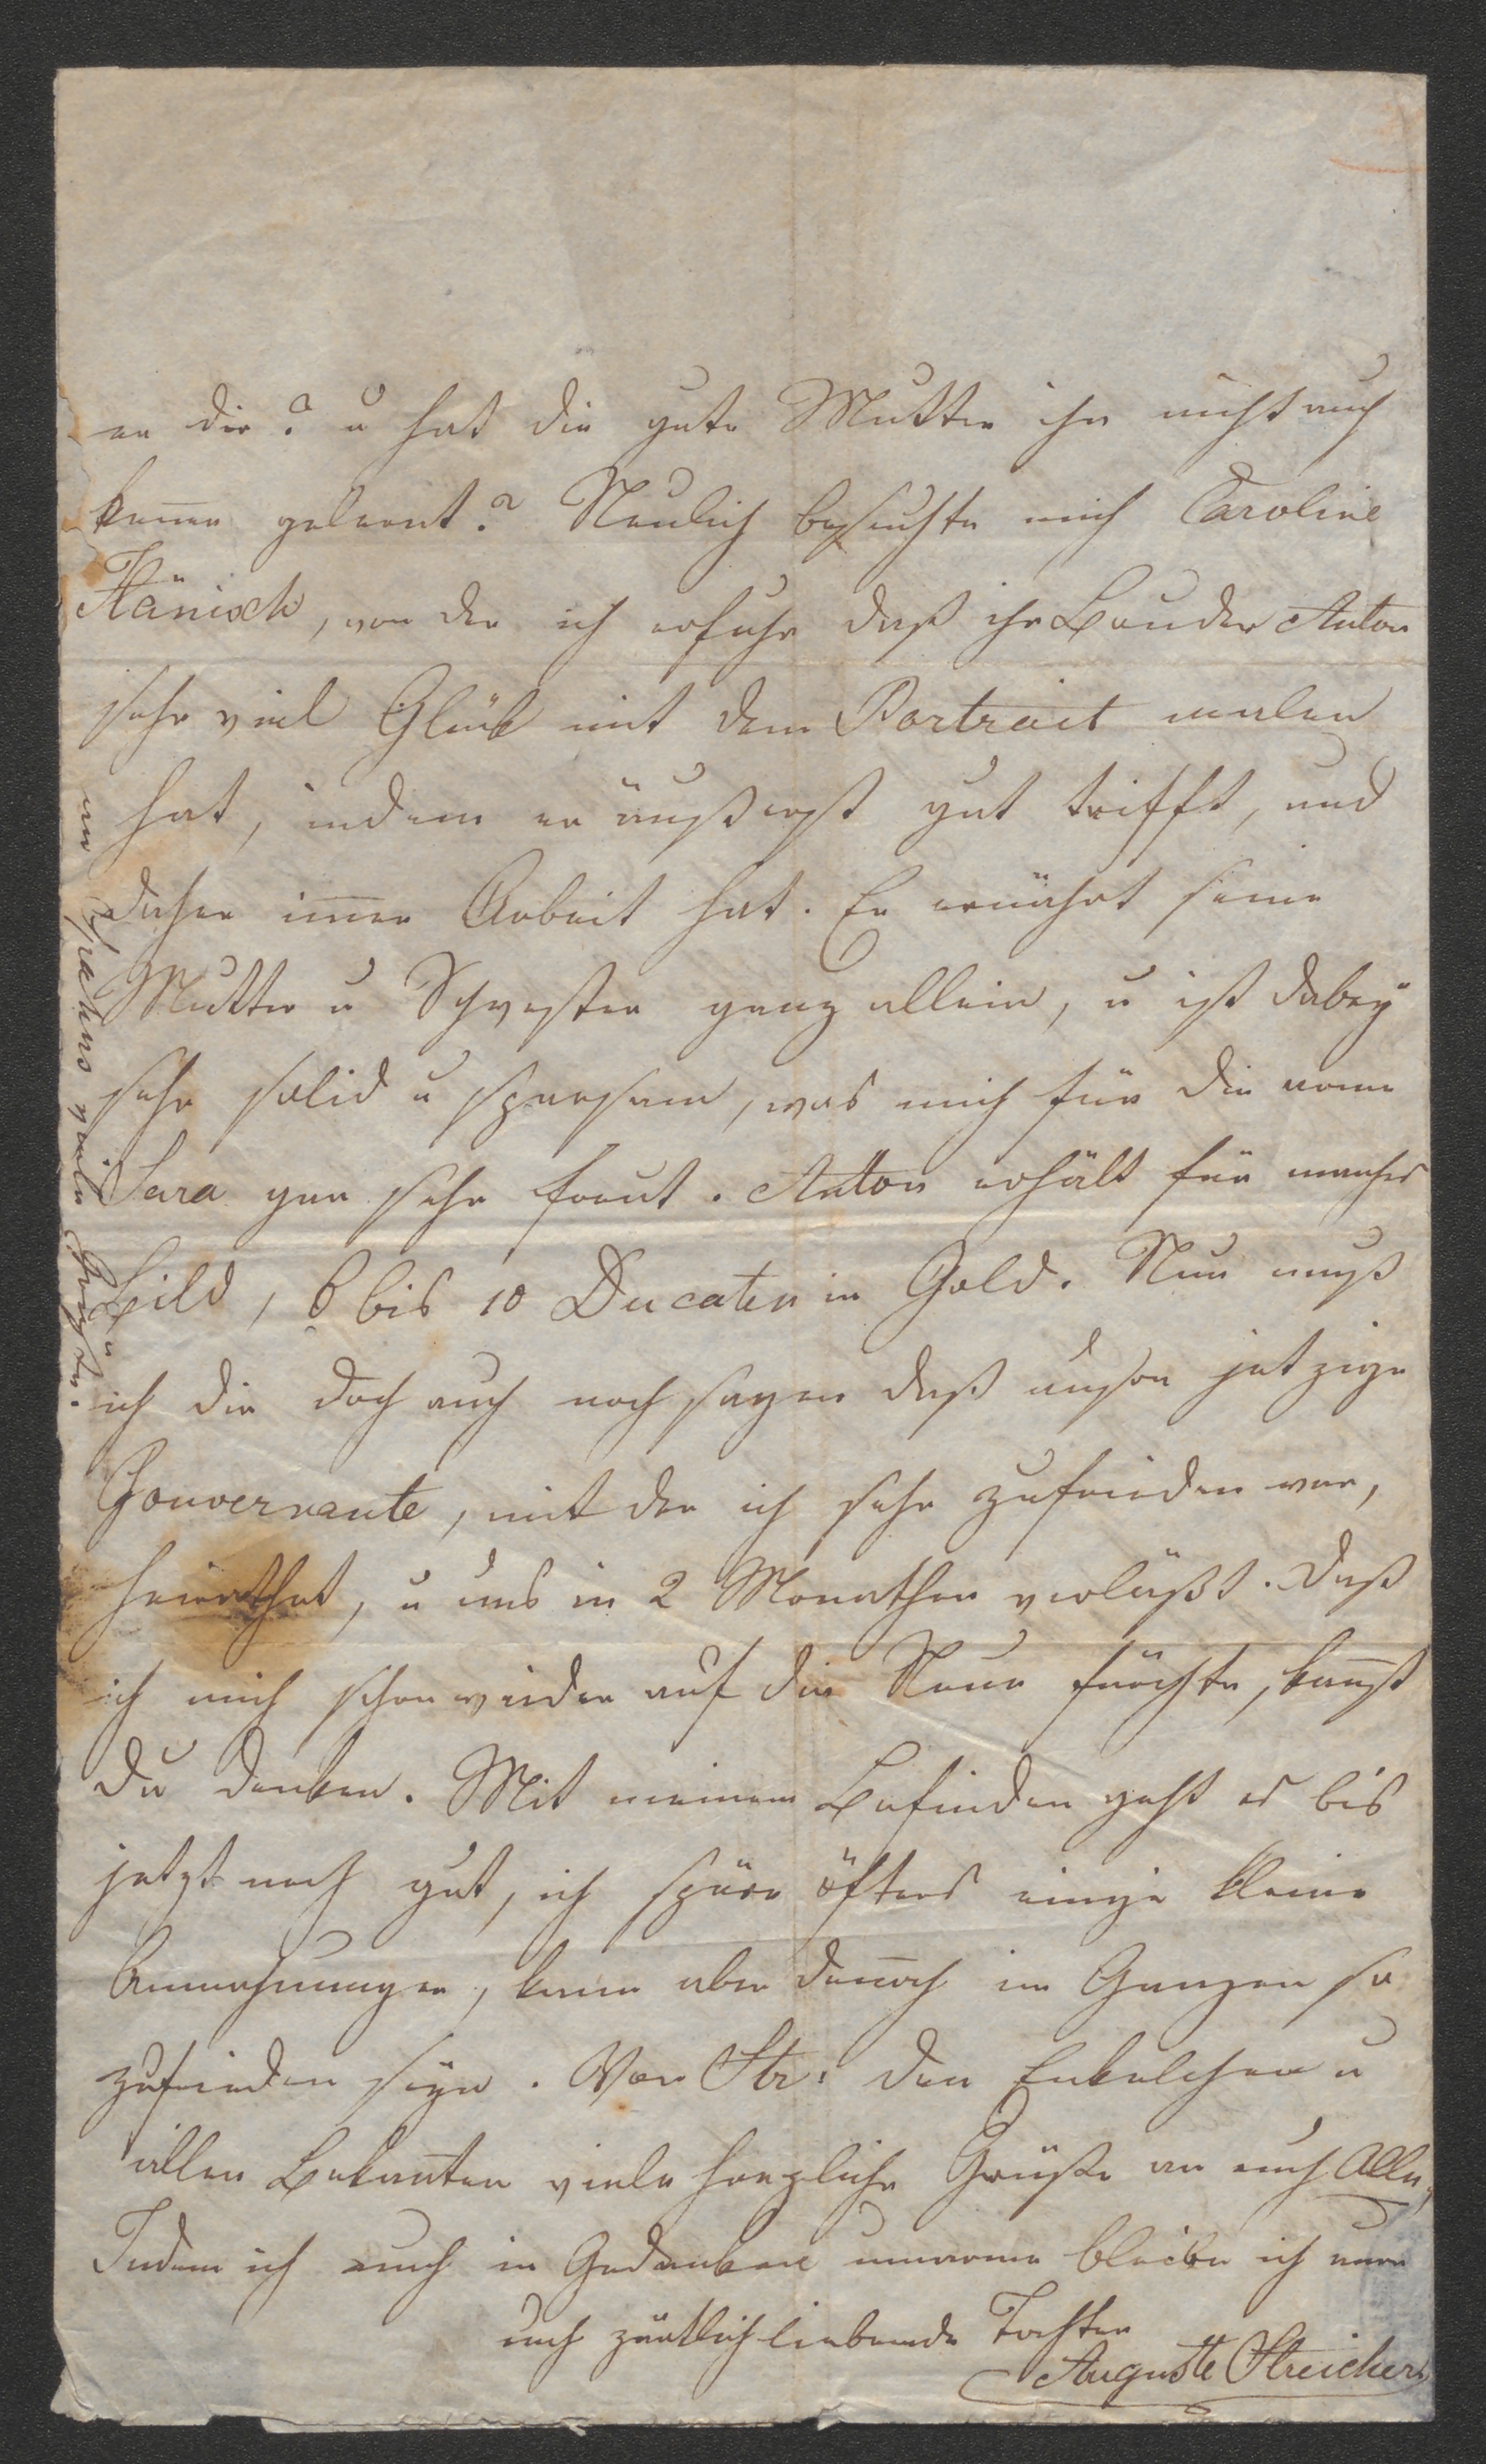 er dir? u hat die gute Mutter ihn nicht auch
keñen gelernt? Neulich besuchte mich Caroline
Hänisch, von der ich erfuhr daß ihr Bruder Anton
sehr viel Glück mit dem Portrait malen
hat, indem er äußerst gut trifft, und
daher im̃er Arbeit hat. Er ernährt seine
Mutter u Schwester ganz allein, u ist dabey
sehr solid u sparsam, was mich für die arme
Sara gar sehr freut. Anton erhält für manches
Bild, 6 bis 10 Ducaten in Gold. Nun muß
ich dir doch auch noch sagen daß unsere jetzige
Gouvernante, mit der ich sehr zufrieden war,
heirathet, u uns in 2 Monathen verläßt. Daß
ich mich schon wieder auf die Neue fürchte, kañst
du denken. Mit meinem Befinden geht es bis
jetzt noch gut, ich spüre öfters einige kleine
Anmahnungen, kann aber deñoch im Ganzen so
zufrieden seyn. Von Str: den Enkelchen u
allen Bekañten viele herzliche Grüße an euch Alle,
Indem ich euch in Gedanken umarme bleibe ich eure
euch zärtlich liebende Tochter
Auguste Streicher
an Spahns viele Grüße.